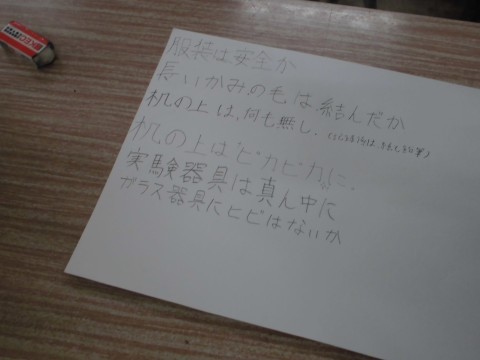 服装は安全か
長いかみの毛は結んだか
机の上は、何も無し。
机の上はピカピカに。
実験器具は真ん中に
ガラス器具にヒビはないか